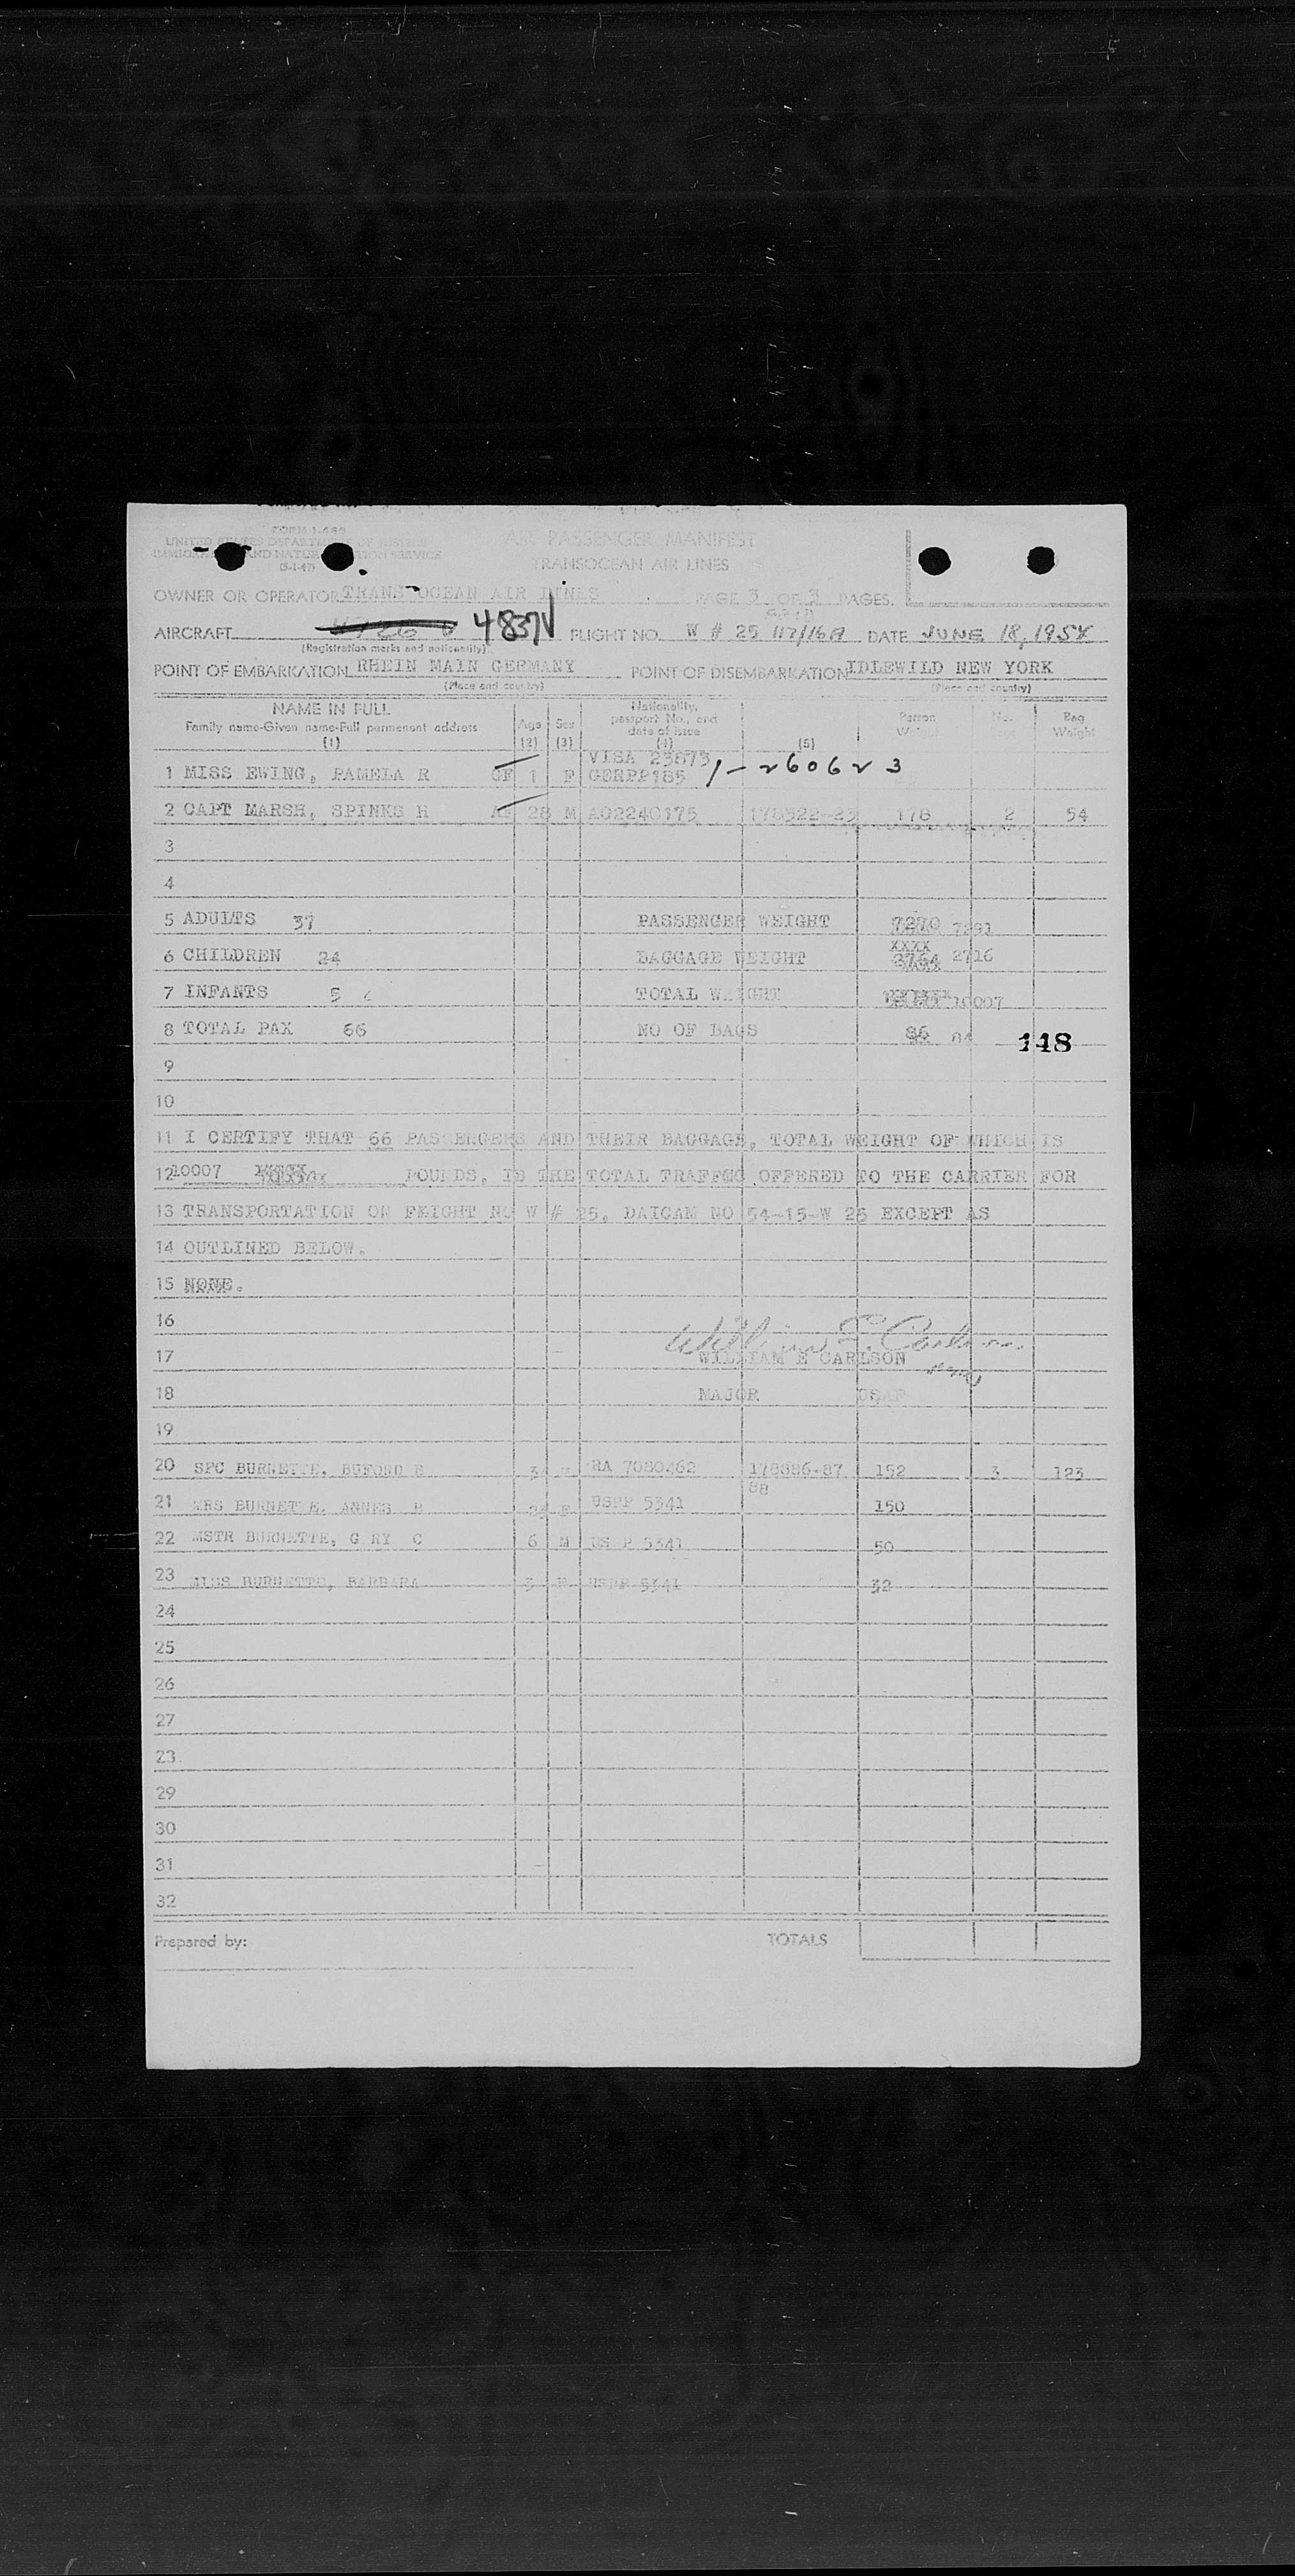 FORM I-466
UNITED STATES DEPARTMENT OF JUSTICE
IMMIGRATION AND NATURALIZATION SERVICE
(5-1-47)
AIR PASSENGER MANIFEST
TRANSOCEAN AIR LINES
OWNER OR OPERATOR TRANS-OCEAN AIR LINES PAGE 3 OF 3 PAGES.
AIRCRAFT 4837V FLIGHT NO. W # 25 117/16A DATE JUNE 18, 1954
(Registration marks and nationality)
POINT OF EMBARKATION RHEIN MAIN GERMANY POINT OF DISEMBARKATION IDLEWILD NEW YORK
(Place and country) (Place and country)
NAME IN FULL Age Sex Nationality, passport No., and date of issue Person Weight No. Bag Weight
Family name-Given name-Full permanent address
(1) (2) (3) (4) (5)
VISA 23673
1 MISS EWING, PAMELA R GF 1 F GERPP185 1-260623
2 CAPT MARSH, SPINKS H AF 28 M AO2240175 178322-23 178 2 54
3
4
5 ADULTS 37 PASSENGER WEIGHT 7291
6 CHILDREN 24 BAGGAGE WEIGHT 2716
7 INFANTS 5 TOTAL WEIGHT 10007
8 TOTAL PAX 66 NO OF BAGS 86 84 148
9
10
11 I CERTIFY THAT 66 PASSENGERS AND THEIR BAGGAGE, TOTAL WEIGHT OF WHICH IS
12 10007 POUNDS, IS THE TOTAL TRAFFIC OFFERED TO THE CARRIER FOR
13 TRANSPORTATION ON FEIGHT NO W # 25, DAICAM NO 54-15-W 25 EXCEPT AS
14 OUTLINED BELOW.
15 NONE.
16
William E Carlson
17 WILLIAM E CARLSON
18 MAJOR USAF
19
20 SFC BURNETTE, BUFORD B RA 7080462 178886-87 152 3 123
88
21 MRS BURNETTE, AGNES B F USPP 5341 150
22 MSTR BURNETTE, G RY C 6 M US P 5341 50
23 MISS BURNETTE, BARBARA 3 F USPP 5341 32
24
25
26
27
28
29
30
31
32
Prepared by: TOTALS